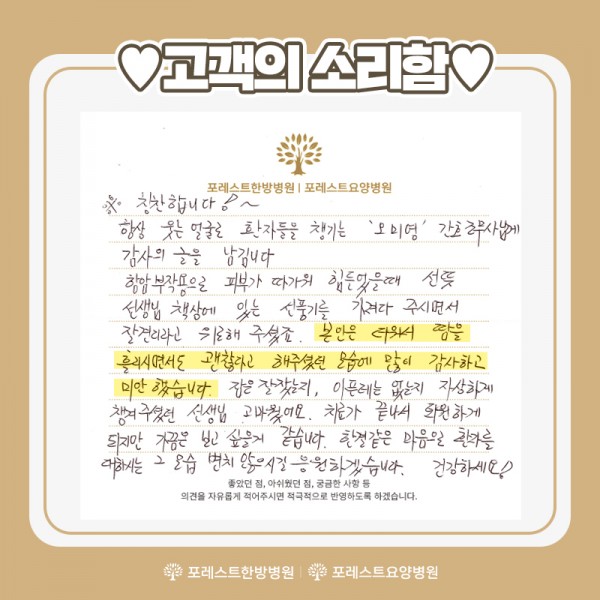 ♥고객의 소리함♥
포레스트한방병원 | 포레스트요양병원
※ 칭찬합니다!~
항상 웃는 얼굴로 환자들을 챙기는 '오미영' 간호조무사님께
감사의 글을 남깁니다
항암 부작용으로 피부가 따가워 힘들었을때 선뜻
선생님 책상에 있는 선풍기를 가져다 주시면서
잘견디라고 위로해 주셨죠. 본인은 더워서 땀을
흘리시면서도 괜찮다고 해주셨던 모습에 많이 감사하고
미안했습니다. 잠은 잘잤는지, 아픈데는 없는지 자상하게
챙겨주셨던 선생님 고마웠어요. 치료가 끝나서 퇴원하게
되지만 가끔은 보고 싶을거 같습니다. 한결같은 마음으로 환자를
대하시는 그 모습 변치 않으시길 응원하겠습니다. 건강하세요!
좋았던 점, 아쉬웠던 점, 궁금한 사항 등
의견을 자유롭게 적어주시면 적극적으로 반영하도록 하겠습니다.
포레스트한방병원 | 포레스트요양병원